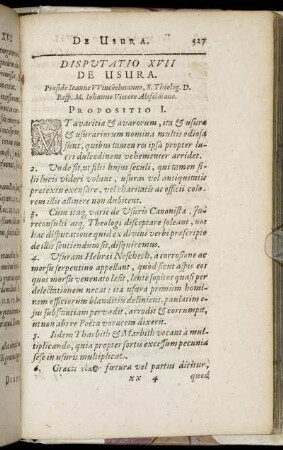 DE USURA. 527
DISPUTATIO XVII
DE USURA.
Præside Ioanne VVinckelmanno, S. Theolog. D.
Resp. M. Iohanne Victore Alsfeldiano.
PROPOSITIO I.
UT avaritia & avarorum, ita & usuræ
& usurariorum nomina multis odiosa
sunt, quibus tamen res ipsa propter lu-
cri dulcedinem vehementer arridet.
2. Unde fit, ut filii hujus seculi, qui tamen fi-
lii lucis videri volunt, usuras vel antiquitatis
prætextu exensare, vel charitatis ac officii colo-
rem illis allinere non dubitent.
3. Cum itaq; varie de Usuris Canonistæ, Iu-
reconsulti atq; Theologi disceptare soleant, nos
hac disputatione quid ex divini verbi præscripto
de illis sentiendum sit, disquiremus.
4. Usuram Hebræi Neschech, à corrosione ac
morsu serpentino appellant, quod sicut aspis eor
quos morsu venenato læsit, lente sopitos quasi per
delectationem necat: ita usura primum homi-
nem efficiorum blanditiis deliniens, paulatim e-
jus substantiam pervadit, arrodit & corrumpit,
ut non abs re Poëta voracem dixerit.
5. Iidem Tharbith & Marbith vocant à mul-
tiplicando, quia propter sortis excessum pecunia
sese in usuris multiplicat.
6. Græcis τόκος fœtura vel partus dicitur,
xx 4 quod